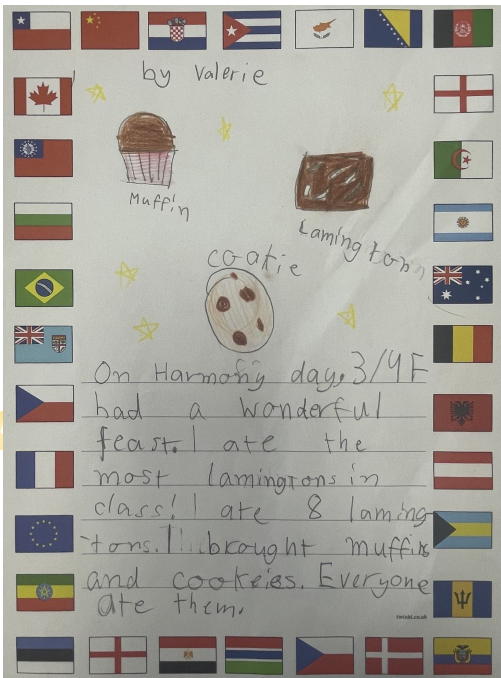 by Valerie
Muffin
Lamingtown
cookie
On Harmony day, 3/4F
had a wonderful
feast. I ate the
most lamingtons in
class! I ate 8 laming
-tons. I brought muffins
and cookeies. Everyone
ate them.
twinkl.co.uk